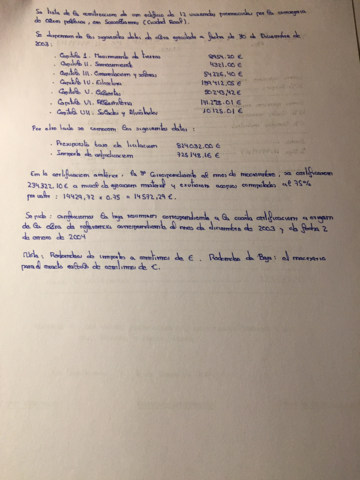 Se trata de la construccion de un edificio de 12 viviendas promovidas por la consejeria
de obras publicas, en (Ciudad Real).
Se disponen de los siguientes datos de obra ejecutada a fecha de 30 de Diciembre de
2003:
· Capitulo I. Movimiento de tierras 8954.20 €
· Capitulo II. Saneamiento 4321.00 €
· Capitulo III. Cimentacion y 54.226,40 €
· Capitulo IV. Estructura 199.412,05 €
· Capitulo V. Cubiertas 50.243,42 €
· Capitulo VI. Albañileria 141.298.01 €
· Capitulo VII. Solados y Alicatados 10.123.01 €
Por otro lado se conocen los siguientes datos:
- Presupuesto base de licitacion 824.032.00 €
- Importe de adjudicacion 725.148.16 €
En la certificacion anterior, la 8ª correspondiente al mes de noviembre, se certificaron
234.322,10 € a de ejecucion material y existieron acopios computados al 75%
por valor: 19429,72 x 0.75 = 14572.29 €.
Se pide: la correspondiente a la certificacion a origen
de la obra de referencia correspondiente al mes de diciembre de 2003 y de fecha 2
de enero de 2004
Nota: Redondeo de importes a centimos de €. Redondeo de Baja: el necesario
para el exacto de centimos de €.